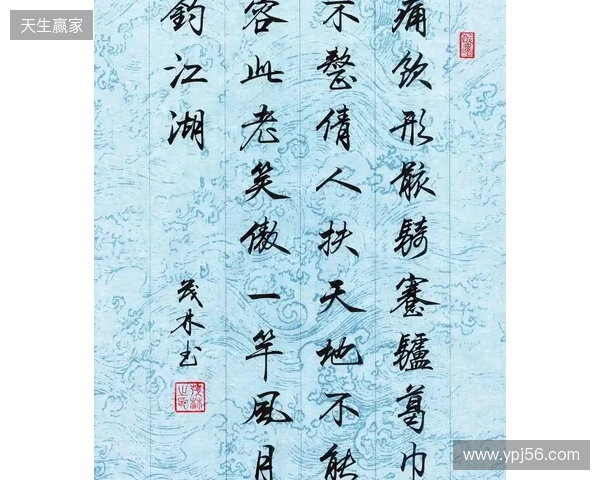 天生赢家
痛饮形骸騎蹇驢葛巾
不整倩人扶天地不能
容此老笑傲一竿風月
釣江湖
茂林书
www.ypj56.com